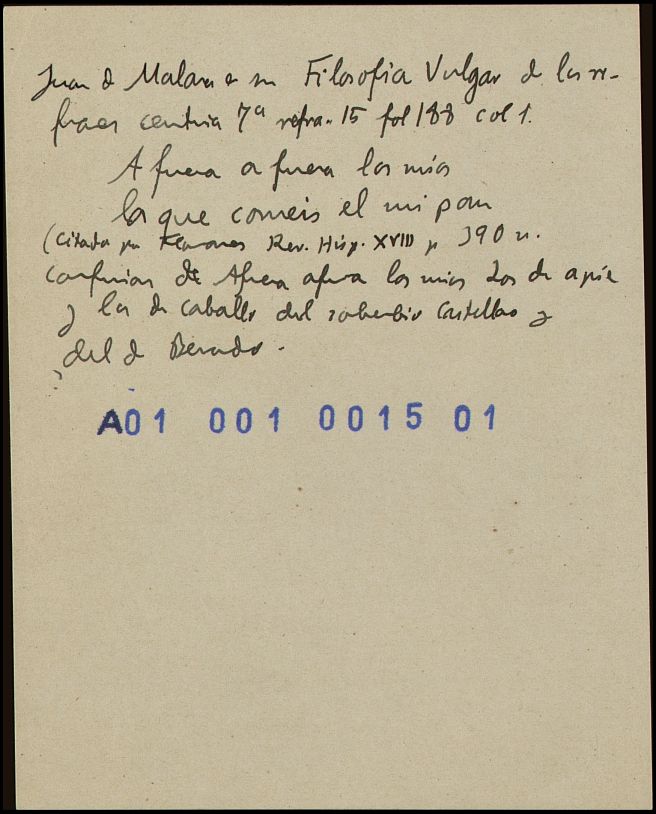 Juan d Malara en su Filosofia Vulgar d los re-
franes centuria 7ª refra. 15 fol 188 col 1.
A fuera a fuera los mios
los que comeis el mi pan
(citada por Rev. Hisp. XVIII p 390 n.
confusion de Afuera afuera los mios Los de a pie
y los de caballo del soberbio Castellano y
del d Bernardo.
A01 001 0015 01